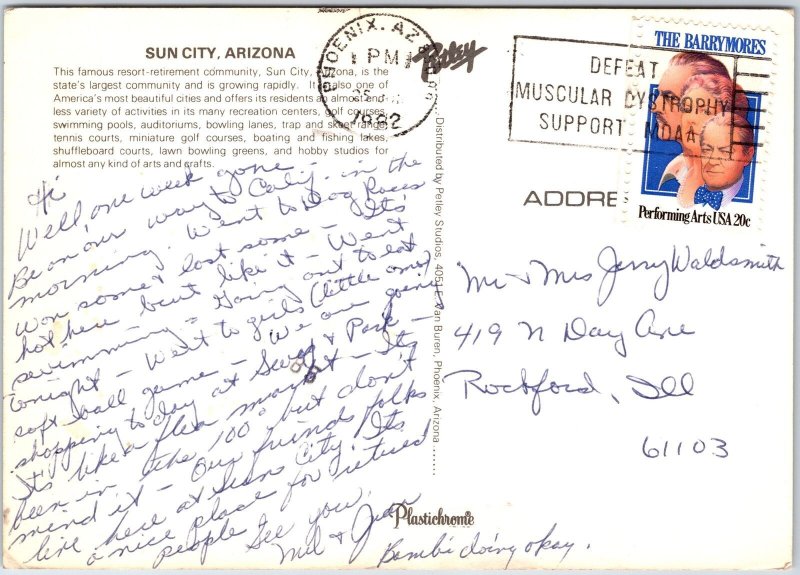 SUN CITY, ARIZONA
This famous resort-retirement community, Sun City, Arizona, is the
state's largest community and is growing rapidly. It is also one of
America's most beautiful cities and offers its residents an almost end-
less variety of activities in its many recreation centers, golf courses,
swimming pools, auditoriums, bowling lanes, trap and skeet range,
tennis courts, miniature golf courses, boating and fishing lakes,
shuffleboard courts, lawn bowling greens, and hobby studios for
almost any kind of arts and crafts.
Hi
Well, one week gone
Be on our way to Calif. in the
morning. Went to Dog Races
won some & lost some - It's
hot here but like it - Went
swimming - Going out to eat
tonight - Went to girls (little ones)
soft ball game - We are going
shopping today at Swap & Park -
It's like a flea market - It's
been in the 100° but don't
mind it - Our friends folks
live here at Sun City. It's
a nice place for retired
people
See you,
Mel & Jean
Bambi doing okay.
PHOENIX, AZ
PM
1982
Petley
Distributed by Petley Studios, 4051 E. Van Buren, Phoenix, Arizona
Plastichrome
DEFEAT
MUSCULAR DYSTROPHY
SUPPORT MDAA
THE BARRYMORES
Performing Arts USA 20c
ADDRE
Mr & Mrs Jerry Waldsmith
419 N Day Ave
Rockford, Ill
61103